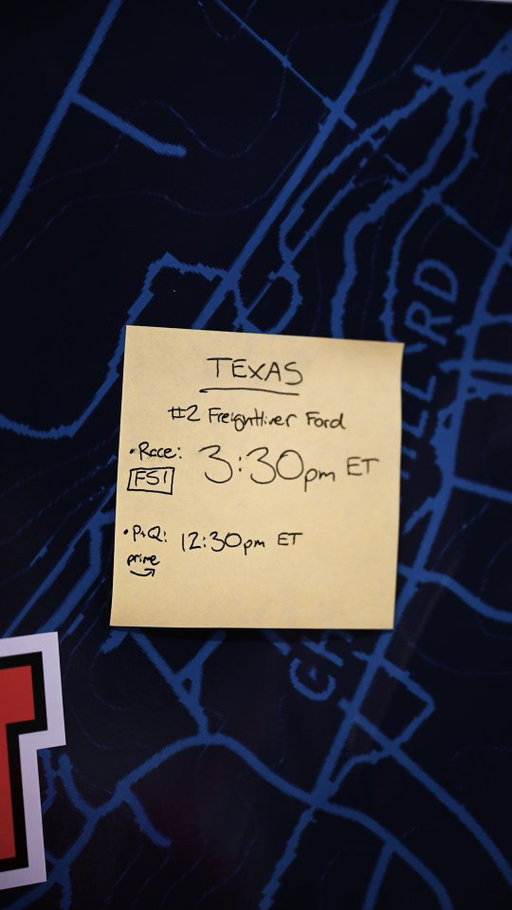 TEXAS
#2 Freightliner Ford
• Race: 3:30pm ET
FS1
• P+Q: 12:30pm ET
prime
HILL RD